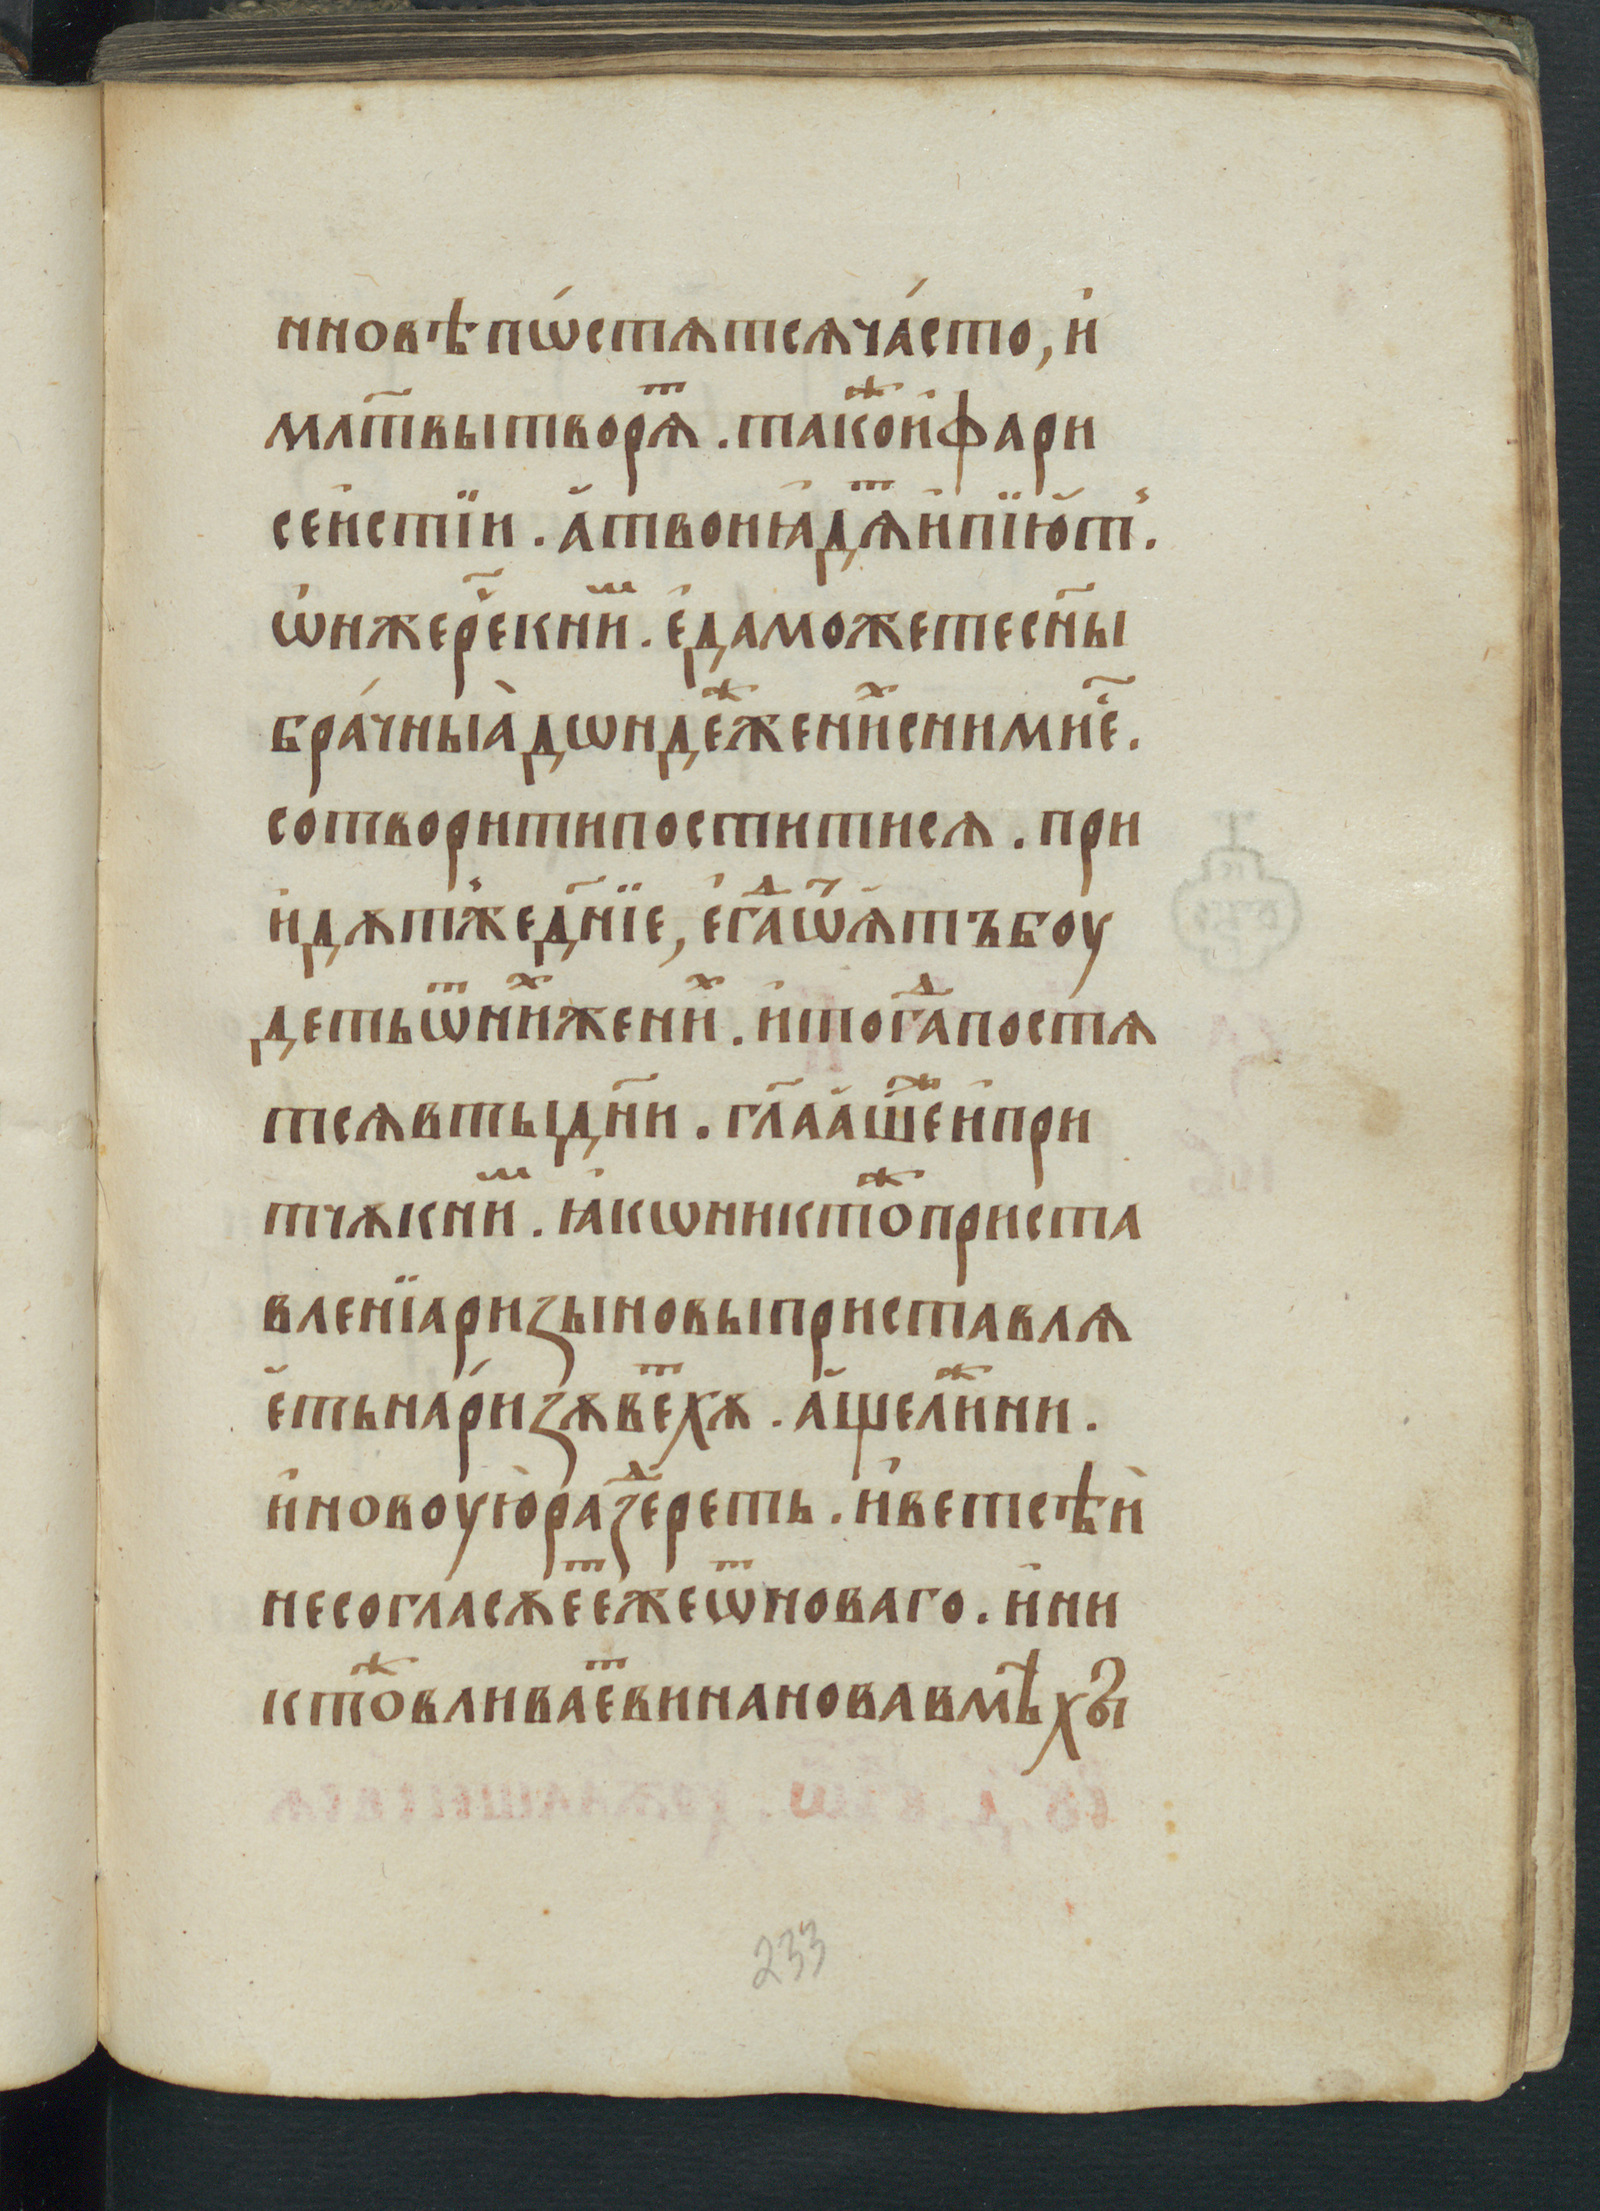 нновѣ пѡ́стѧтсѧ ча́сто, и҆
мл҃твы творѧⷮ. такоⷤ и҆ фари
се́йстїи. а҆ твои ꙗ҆дѧⷮ и҆ пїю҆т̾.
ѡ҆нже рече к ниⷨ. е҆да можете сн҃ы
бра́чныꙗ̀ дѡндеⷤже жениⷯ с ними е҆.
сотворити поститисѧ. при
и҆дѧт̾же дн҃їе, е҆гаⷣ ѿѧтъ боу
деть ѿ ниⷯ жениⷯ. и҆ тогаⷣ постѧ
тсѧ в ты дн҃и. гл҃а а҆шеⷤ и҆ при
тчѧ к ниⷨ. ꙗ҆кѡ никтоⷤ приста
вленїа ризы новы приставлѧ
е҆ть на ри́зѧ веⷮхѧ. а҆ще лиⷤ ни.
и҆ новоую̀ раⷣзереть. и҆ ветсѣй
не согласѧеⷮ е҆же ѿ новаго. и҆ ни
ктоⷤ вливаеⷮ вина нова в мѣхы
233